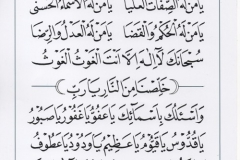 يَا مَنْ لَهُ الصِّفَاتُ الْعُلْيَا يَا مَنْ لَهُ الْأَسْمَاءُ الْحُسْنٰى
يَا مَنْ لَهُ الْحُكْمُ وَالْقَضَا يَا مَنْ لَهُ الْعَدْلُ وَالرِّضَا
سُبْحَانَكَ لَا اِلٰهَ اِلَّا اَنْتَ الْغَوْثُ الْغَوْثُ
خَلِّصْنَا مِنَ النَّارِ يَا رَبِّ
وَاَسْئَلُكَ بِاَسْمَائِكَ يَا عَفُوُّ يَا غَفُورُ يَا صَبُورُ
يَا قُدُّوسُ يَا قَيُّومُ يَا عَظِيمُ يَا وَدُودُ يَا عَطُوفُ